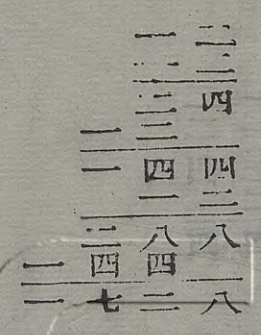 一二
一二
二四
一二
一四四
一二
二八八
一四四
一七二八